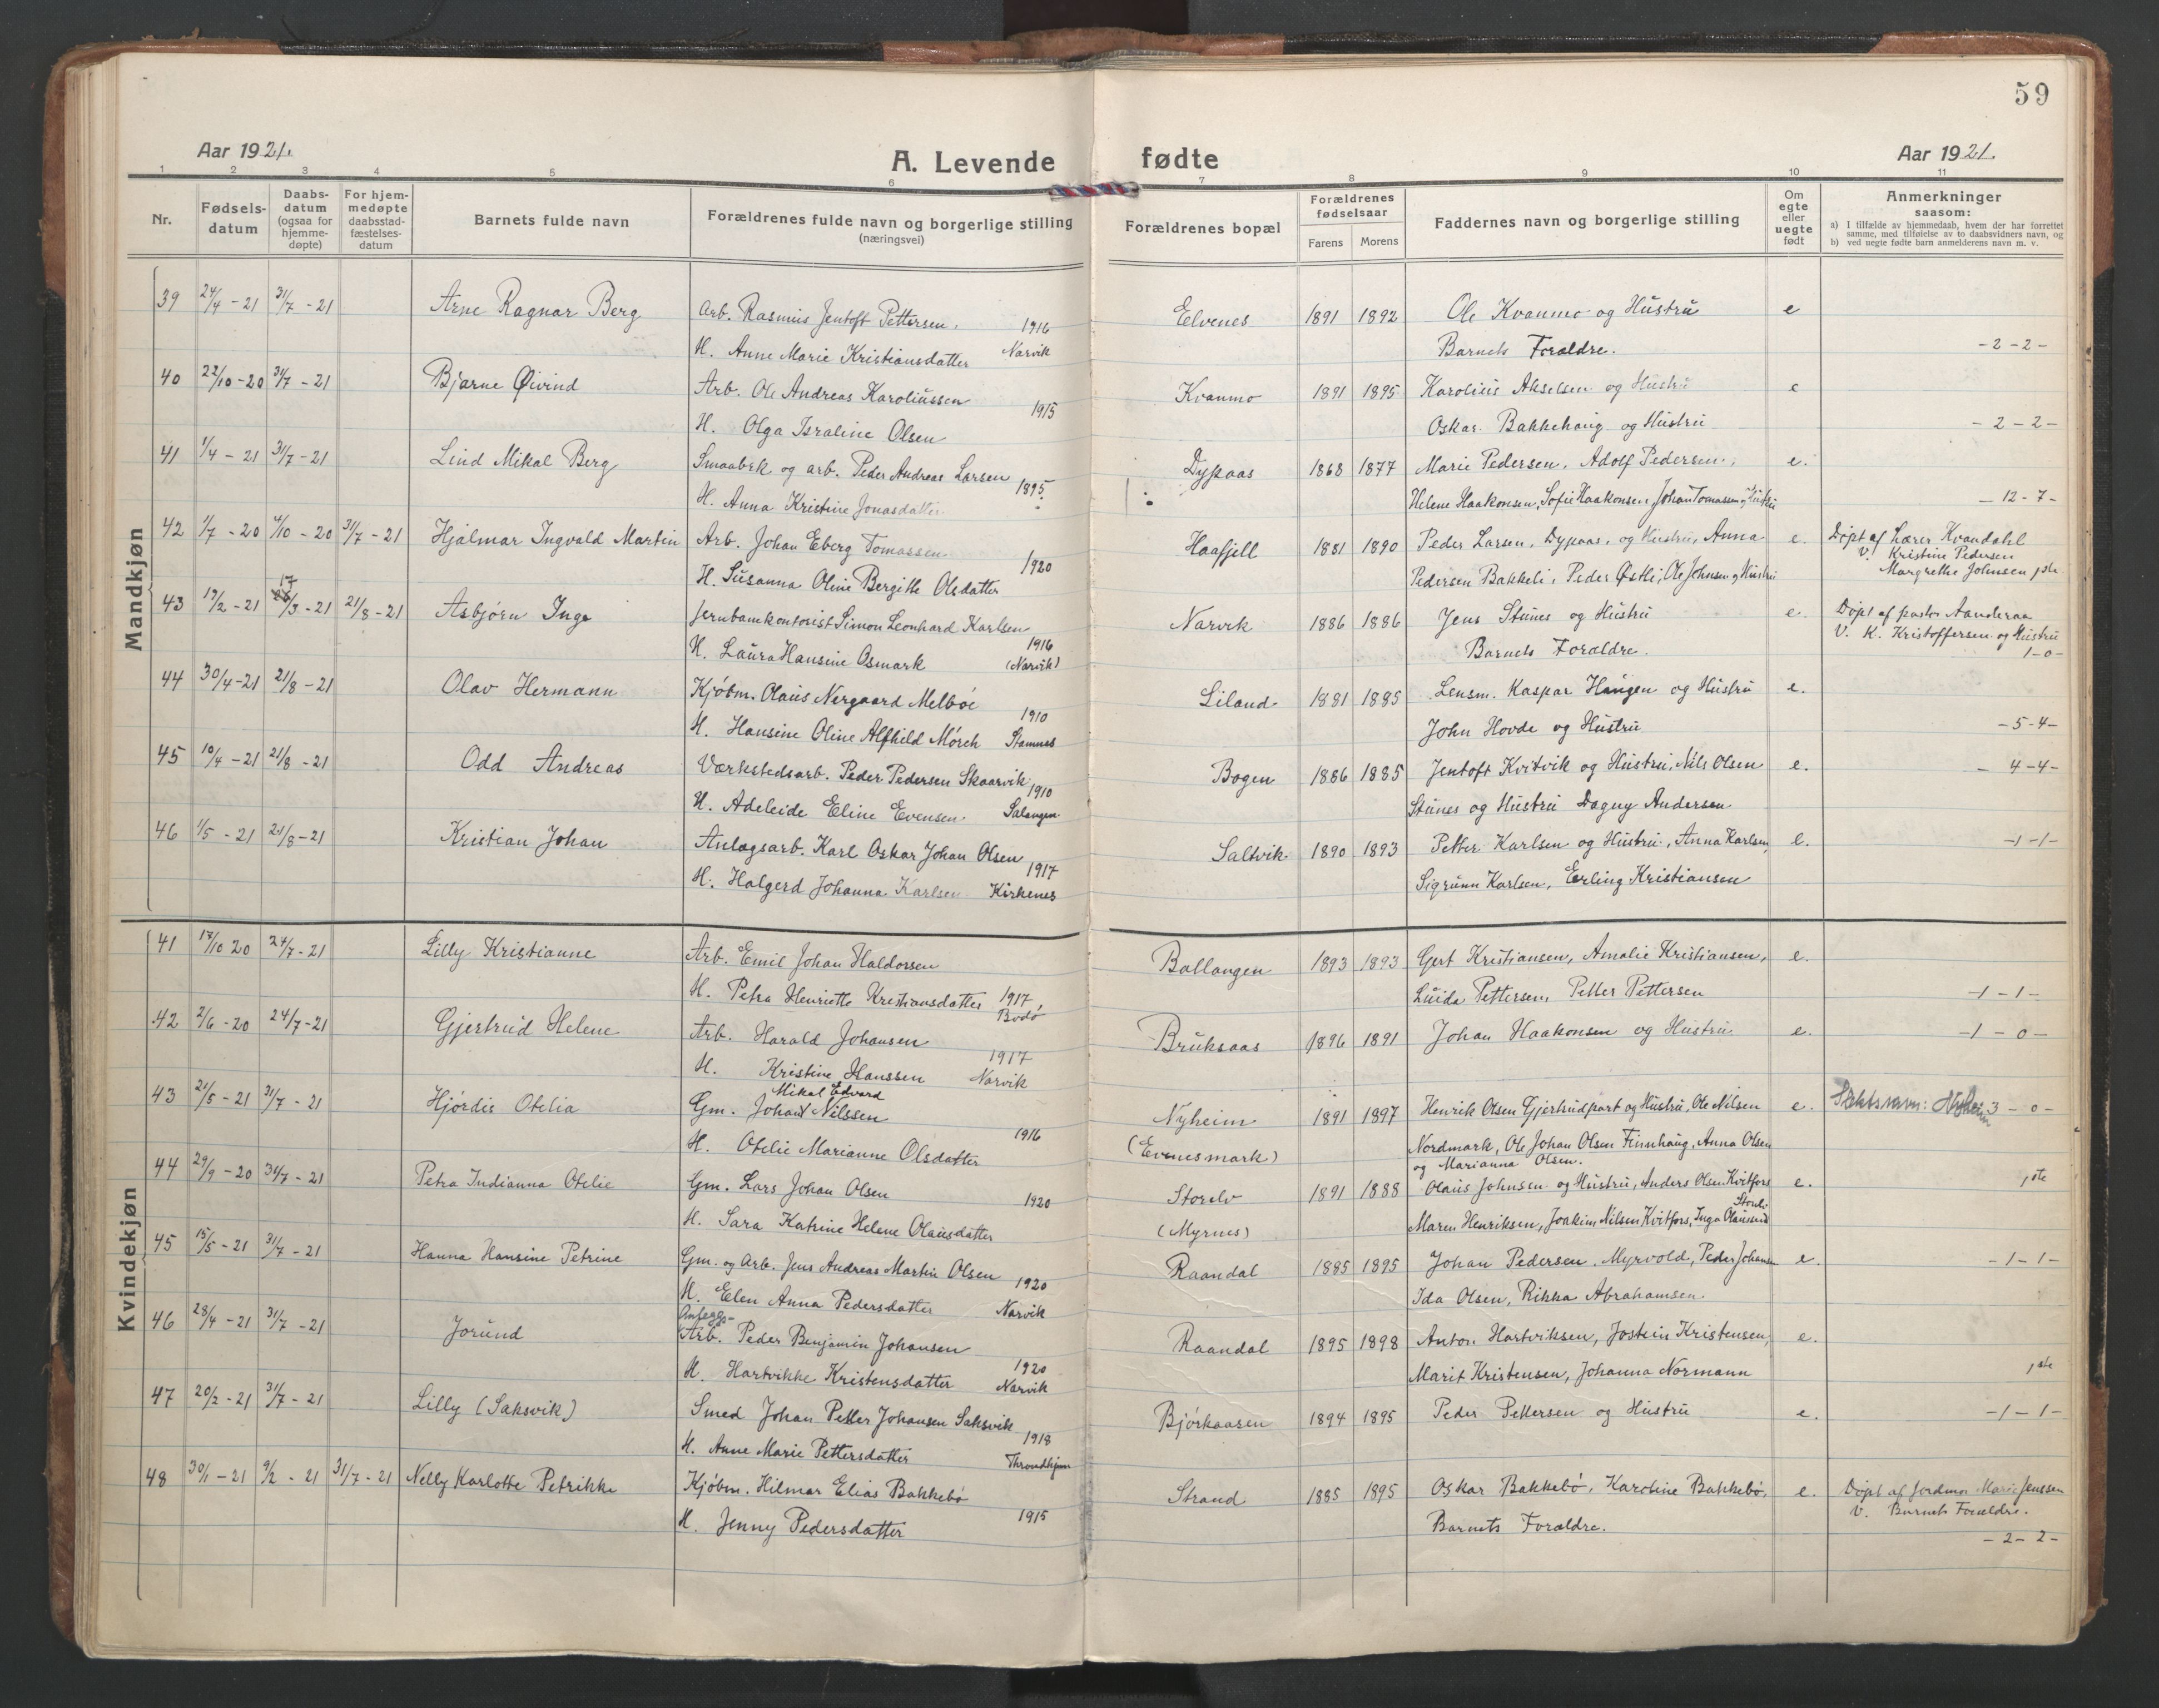 59
Aar 1921.
A. Levende fødte
Aar 1921.
1 2 3 4 5 6 7 8 9 10 11
Nr.
Fødsels-datum
Daabs-datum (ogsaa for hjemme-døpte)
For hjem-medøpte daabsstad-fæstelses-datum
Barnets fulde navn
Forældrenes fulde navn og borgerlige stilling (næringsvei)
Forældrenes bopæl
Forældrenes fødselsaar
Farens Morens
Faddernes navn og borgerlige stilling
Om egte eller uegte født
Anmerkninger
saasom:
a) I tilfælde av hjemmedaab, hvem der har forrettet samme, med tilføielse av to daabsvidners navn, og
b) ved uegte fødte barn anmelderens navn m. v.
Mandkjøn
39 24/4 - 21 31/7 - 21 Arne Ragnar Berg Arb. Rasmus Jentoft Pettersen. 1916 Elvenes 1891 1892 Ole Kvanmo og Hustru e
H. Anne Marie Kristiansdatter Narvik Barnets Forældre. - 2 - 2 -
40 22/10 - 20 31/7 - 21 Bjarne Øivind Arb. Ole Andreas Karoliussen 1915 Kvanmo 1891 1895 Karolius Akselsen og Hustru e
H. Olga Israline Olsen Oskar Bakkehaug og Hustru - 2 - 2 -
41 1/4 - 21 31/7 - 21 Lind Mikal Berg Smaabrk og arb. Peder Andreas Larsen 1895 Dypaas 1868 1877 Marie Pedersen, Adolf Pedersen, e.
H. Anna Kristine Jonasdatter Helene Haakonsen, Sofie Haakonsen, Johan Tomassen og Hustru - 12 - 7 -
42 1/7 - 20 4/10 - 20 31/7 - 21 Hjalmar Ingvald Martin Arb. Johan Eberg Tomassen 1920 Haafjell 1881 1890 Peder Larsen, Dypaas, og Hustru, Anna e. Döpt af Lærer Kvandahl
V. Kristine Pedersen
H. Susanna Oline Bergitte Olsdatter Pedersen Bakkeli, Peder Østli, Ole Johnsen og Hustru Margrethe Johnsen 1ste
43 19/2 - 21 17/3 - 21 21/8 - 21 Asbjørn Inge Jernbanekontorist Simon Leonhard Karlsen 1916 Narvik 1886 1886 Jens Stunes og Hustru e. Döpt af pastor Aanderaa
V. K. Kristoffersen og Hustru
H. Laura Hansine Osmark (Narvik) Barnets Forældre. 1 - 0 -
44 30/4 - 21 21/8 - 21 Olav Hermann Kjøbm. Olaus Nergaard Melbøe 1910 Liland 1881 1885 Lensm. Kaspar Haugen og Hustru e.
H. Hansine Oline Alfhild Mörch Stamnes John Hovde og Hustru - 5 - 4 -
45 10/4 - 21 21/8 - 21 Odd Andreas Værkstedsarb. Peder Pedersen Skaarvik 1910 Bogen 1886 1885 Jentoft Kvitvik og Hustru, Nils Olsen e. - 4 - 4 -
H. Adeleide Eline Evensen. Salangen Stunes og Hustru Dagny Andersen
46 1/5 - 21 21/8 - 21 Kristian Johan Anlægsarb. Karl Oskar Johan Olsen 1917 Saltvik 1890 1893 Petter Karlsen og Hustru, Anna Karlsen, e. - 1 - 1 -
H. Halgerd Johanna Karlsen Kirkenes Sigrunn Karlsen, Erling Kristiansen
Kvindekjøn
41 17/10 20 24/7 - 21 Lilly Kristianne Arb. Emil Johan Haldorsen Ballangen 1893 1893 Gert Kristiansen, Amalie Kristiansen, e.
H. Petra Henriette Kristiansdatter 1917, Bodö Luida Pettersen, Petter Pettersen - 1 - 1 -
42 2/6 - 20 24/7 - 21 Gjertrud Helene Arb. Harald Johansen 1917 Bruksaas 1896 1891 Johan Haakonsen og Hustru e. - 1 - 0 -
H. Kristine Hanssen Narvik
43 21/5 - 21 31/7 - 21 Hjórdis Otelia Gm. Johan Mikal Edvard Nilssen 1916 Nyheim 1891 1897 Henrik Olsen Gjertrudpart og Hustru, Ole Nilsen e. Slektsnavn: Nyheim 3 - 0 -
H. Otelie Marianne Olsdatter (Evenesmark) Nordmark, Ole Johan Olsen Finnhaug, Anna Olsen
og Marianna Olsen.
44 29/9 - 20 31/7 - 21 Petra Indianna Otelie Gm. Lars Johan Olsen 1920 Storelv 1891 1888 Olaus Johnsen og Hustru, Anders Olsen Kvitfors e. 1ste
H. Sara Katrine Helene Olausdatter (Myrnes) Maren Henriksen, Joakim Nilsen Kvitfors, Inga Olaussen
45 15/5 - 21 31/7 - 21 Hanna Hansine Petrine Gm. og Arb. Jens Andreas Martin Olsen 1920 Raandal 1885 1895 Johan Pedersen, Myrvold, Peder Johansen e. - 1 - 1 -
H. Elen Anna Pedersdatter Narvik Ida Olsen, Rikka Abrahamsen
46 28/4 - 21 31/7 - 21 Jorund Anlegs- Arb. Peder Benjamin Johansen 1920 Raandal 1895 1898 Anton Hartviksen, Jostein Kristensen, e.
H. Hartvikke Kristensdatter Narvik Marit Kristensen, Johanna Normann 1ste
47 20/2 - 21 31/7 - 21 Lilly (Saksvik) Smed Johan Petter Johansen Saksvik 1918 Bjórkaasen 1894 1895 Peder Pettersen og Hustru e. - 1 - 1 -
H. Anne Marie Pettersdatter Throndhjem
48 30/1 - 21 9/2 - 21 31/7 - 21 Nelly Karlotte Petrikke Kjøbm. Hilmar Elias Bakkebó 1915 Strand 1885 1895 Oskar Bakkebó, Karoline Bakkebó, e. Döpt af Jordmor Marie Jenssen
H. Jenny Pedersdatter Barnets Forældre. V. Barnets Forældre.
- 2 - 2 -